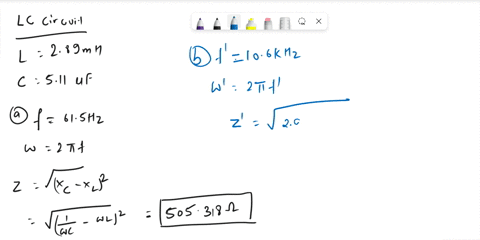 LC Circuit
L = 2.89 mH
C = 5.11 uF
(a) f = 61.5Hz
ω = 2πf
Z = √(Xc - XL)²
= √(1/ωC - ωL)² = 505.318Ω
(b) f' = 10.6KHz
ω' = 2πf'
Z' = √2.